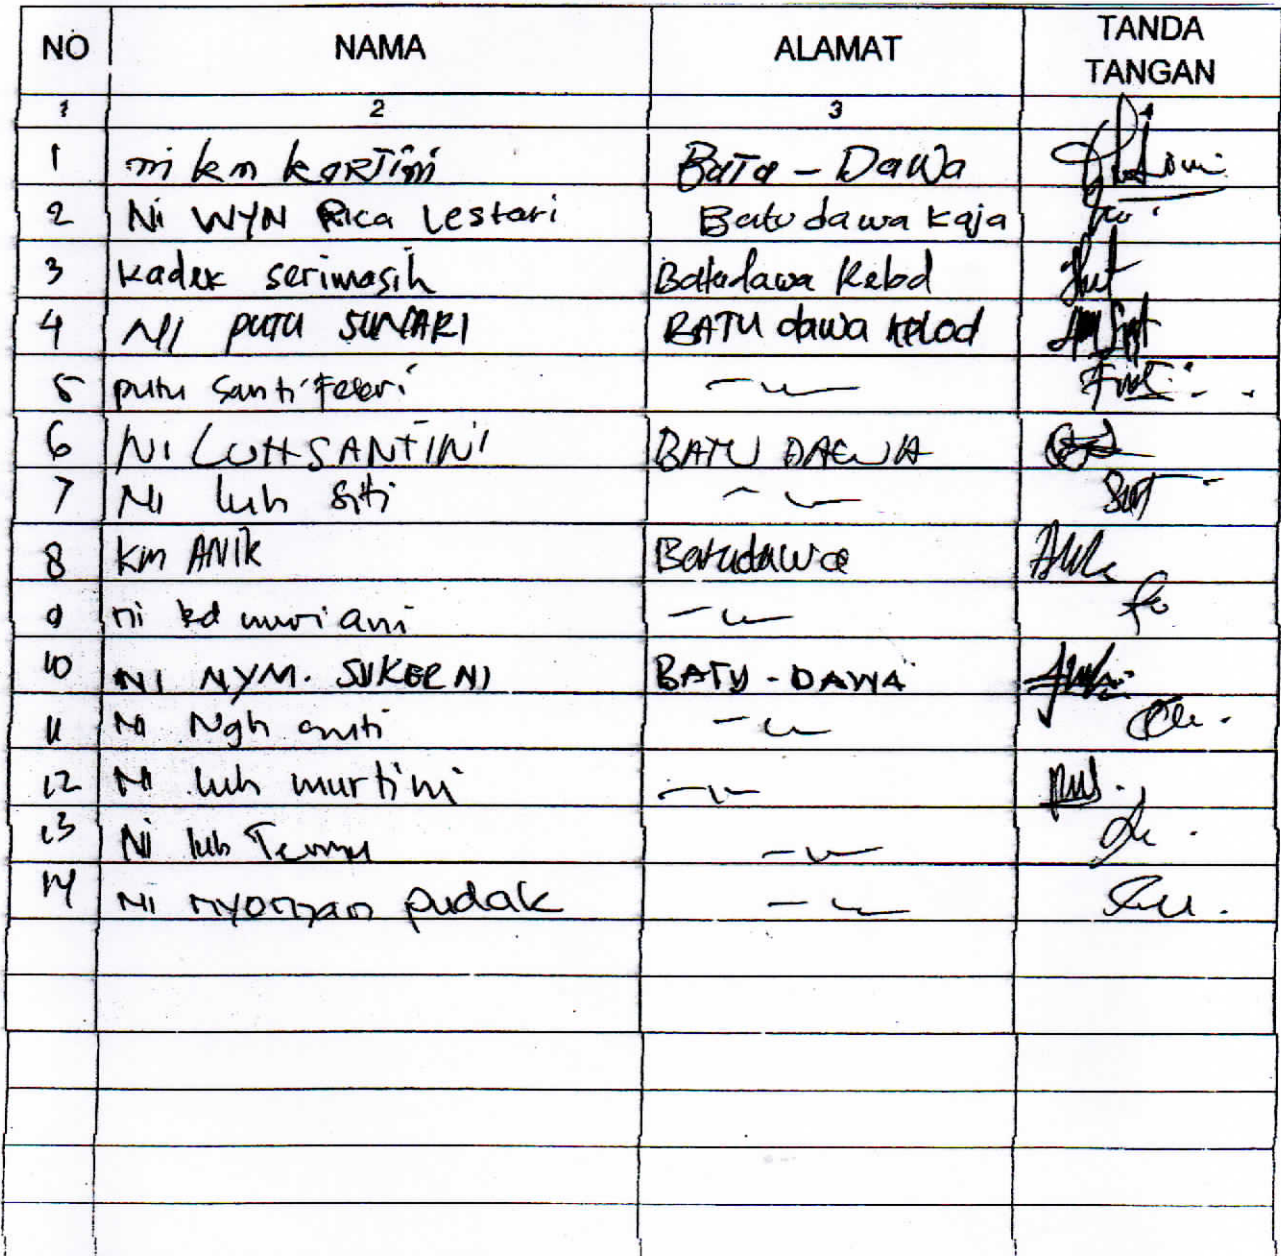 NO NAMA ALAMAT TANDA TANGAN
1 2 3 4
1 ni km kartini Bata - Dawa
2 Ni WYN Rica Lestari Batu dawa kaja
3 kadek serimasih Batudawa Kelod
4 NI PUTU SUNARI BATU dawa kelod
5 putu Santi
6 NI LUH SANTINI BATU DAWA
7 Ni luh Siti
8 km ANIK Batudawa
9 ni kd muriani
10 NI NYM. SUKERNI BATU - DAWA
11 Ni Ngh
12 Ni luh murtini
13 Ni luh
14 Ni nyoman pudak